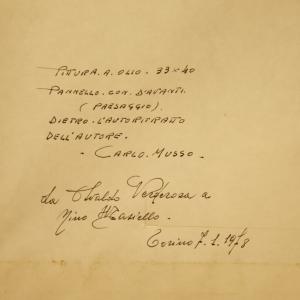 PITTURA. A. OLIO. 33x40
PANNELLO. CON. D'AVANTI.
(PAESAGGIO).
DIETRO. L'AUTORITRATTO
DELL'AUTORE.
- CARLO. MUSSO -
da Osvaldo Vergerosa a
Nino Masiello.
Torino 7. 1. 1978